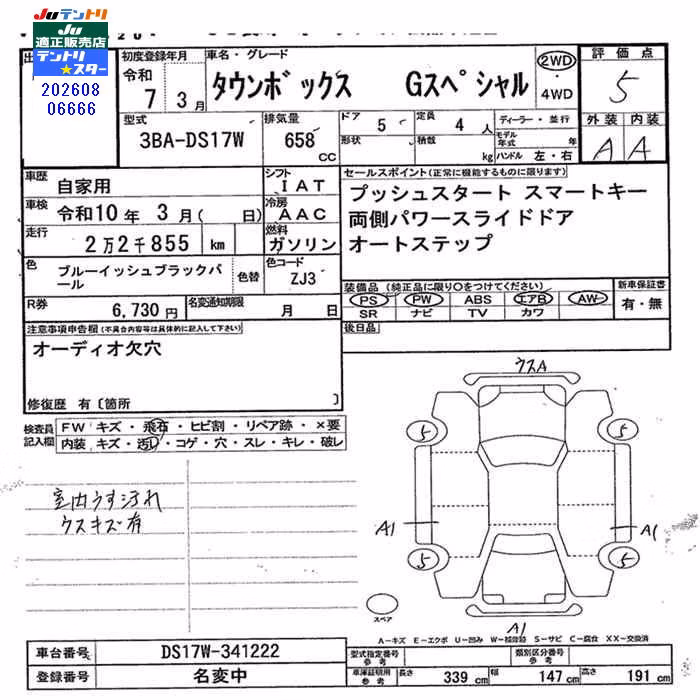 Juテントリ
Ju
適正販売店
テントリ
★スター
202608
06666
初度登録年月
令和
7 年 3月
車名・グレード
タウンボックス Gスペシャル
2WD
・
4WD
評価点
5
外装 内装
A A
型式
3BA-DS17W
排気量
658
CC
ドア 5
形状
定員 4 人
積数 kg
ディーラー・並行
モデル年式 年
ハンドル 左・右
車歴
自家用
シフト
IAT
車検 令和10年 3月( 日)
冷房
AAC
走行
2万2千855 km
燃料
ガソリン
色
ブルーイッシュブラックパール
色替
色コード
ZJ3
R券 6,730円
名変通知期限 月 日
セールスポイント(正常に機能するものに限ります)
プッシュスタート スマートキー
両側パワースライドドア
オートステップ
装備品(純正品に限り○をつけてください)
PS PW ABS エアB AW
SR ナビ TV カワ
新車保証書
有・無
後日品
注意事項申告欄(不具合内容等は具体的に記入して下さい)
オーディオ欠穴
修復歴 有〔箇所 〕
検査員記入欄
FW キズ・飛石・ヒビ割・リペア跡・×要
内装 キズ・汚レ・コゲ・穴・スレ・キレ・破レ
室内うす汚れ
ウスキズ有
ウスA
5
5
A1
A1
5
5
スペア
A1
A-キズ E-エクボ U-凹み W-補修跡 S-サビ C-腐食 XX-交換済
車台番号 DS17W-341222
登録番号 名変中
型式指定番号
参考
類別区分番号
参考
車庫証明用
参考
長さ 339 cm 幅 147 cm 高さ 191 cm